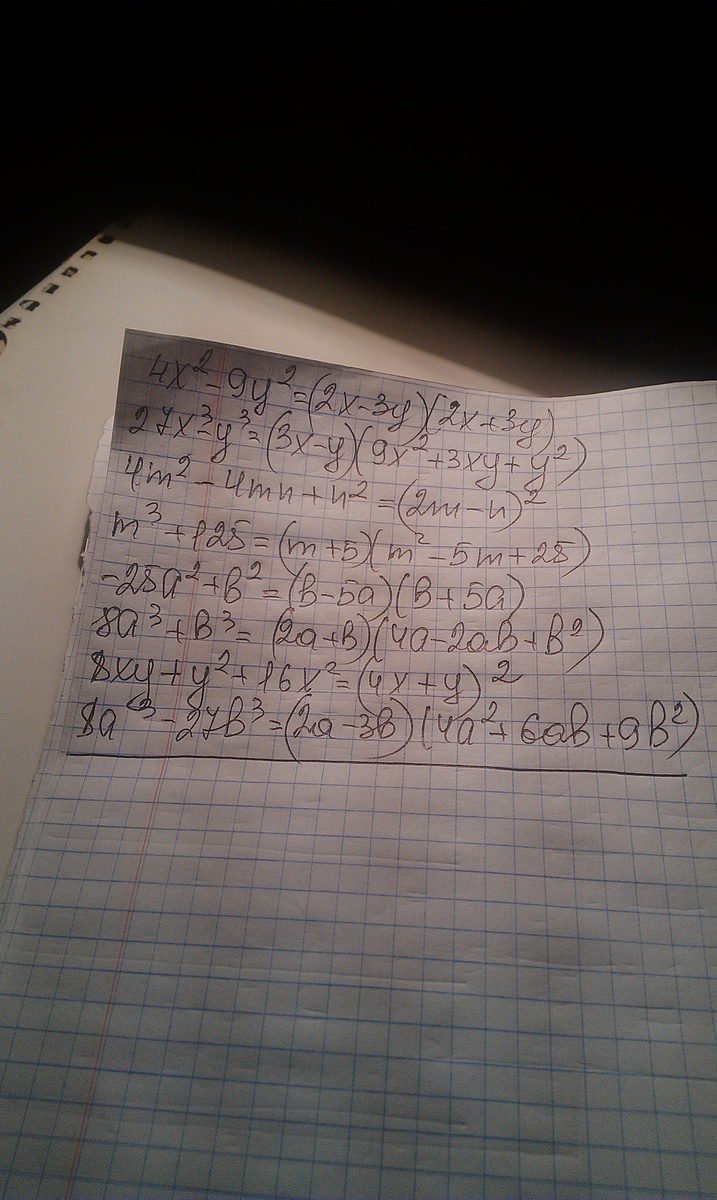 4x² - 9y² = (2x - 3y)(2x + 3y)
27x³ - y³ = (3x - y)(9x² + 3xy + y²)
4m² - 4mn + n² = (2m - n)²
m³ + 125 = (m + 5)(m² - 5m + 25)
-25a² + b² = (b - 5a)(b + 5a)
8a³ + b³ = (2a + b)(4a - 2ab + b²)
8xy + y² + 16x² = (4x + y)²
8a³ - 27b³ = (2a - 3b)(4a² + 6ab + 9b²)